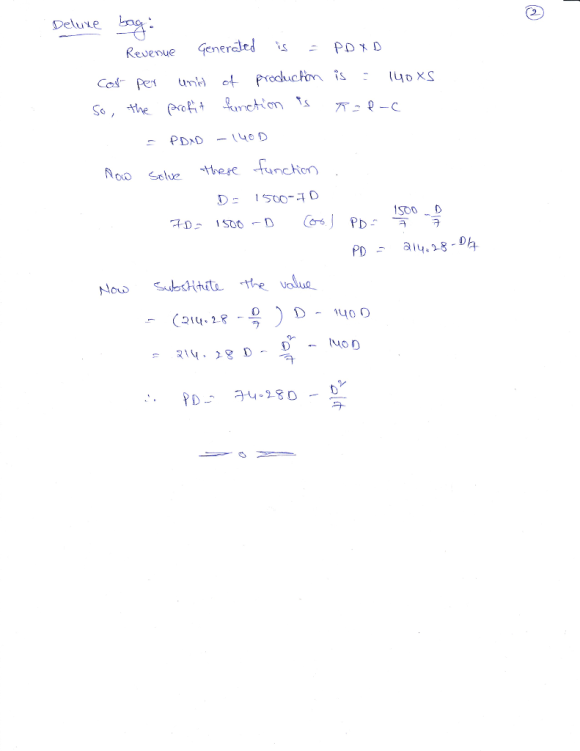 2
Deluxe bag:
Revenue Generated is = PD x D
Cost Per unit of production is = 140 x S
So, the profit function is π = R - C
= PDxD - 140D
Now solve these function.
D = 1500-7D
7D = 1500 - D (or) PD = 1500/7 - D/7
PD = 214.28 - D/7
Now Substitute the value
= (214.28 - D/7) D - 140D
= 214.28 D - D²/7 - 140D
∴ PD = 74.28D - D²/7